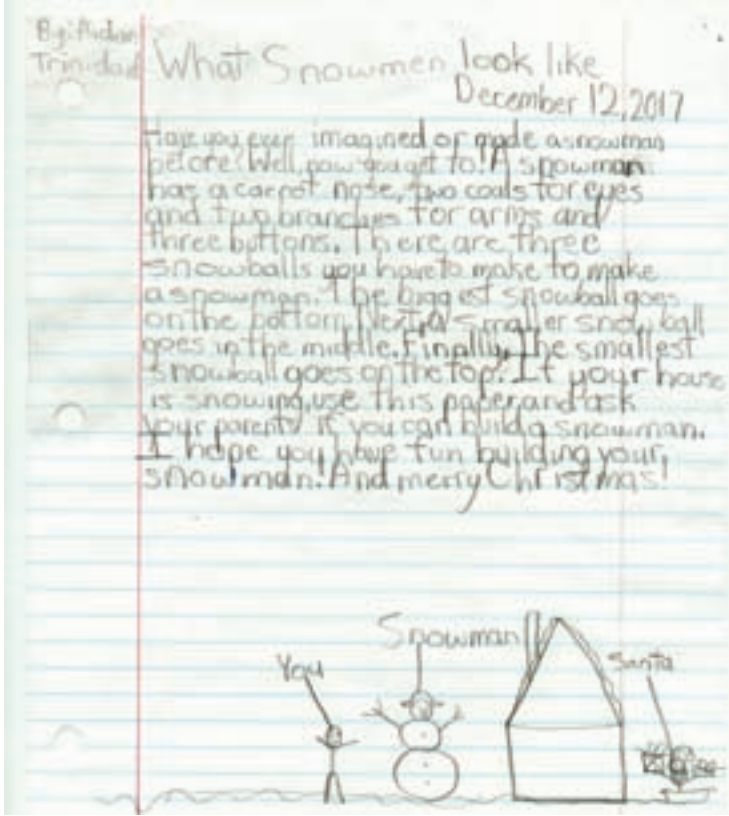 By: Aidan
Trinidad
What Snowmen look like
December 12, 2017
Have you ever imagined or made a snowman
before? Well, now you get to! A snowman
has a carrot nose, two coals for eyes
and two branches for arms and
three buttons. There are three
snowballs you have to make to make
a snowman. The biggest snowball goes
on the bottom. Next, a smaller snowball
goes in the middle. Finally, the smallest
snowball goes on the top! If your house
is snowing, use this paper and ask
your parents if you can build a snowman.
I hope you have fun building your
snowman! And merry Christmas!
Snowman
You
Santa